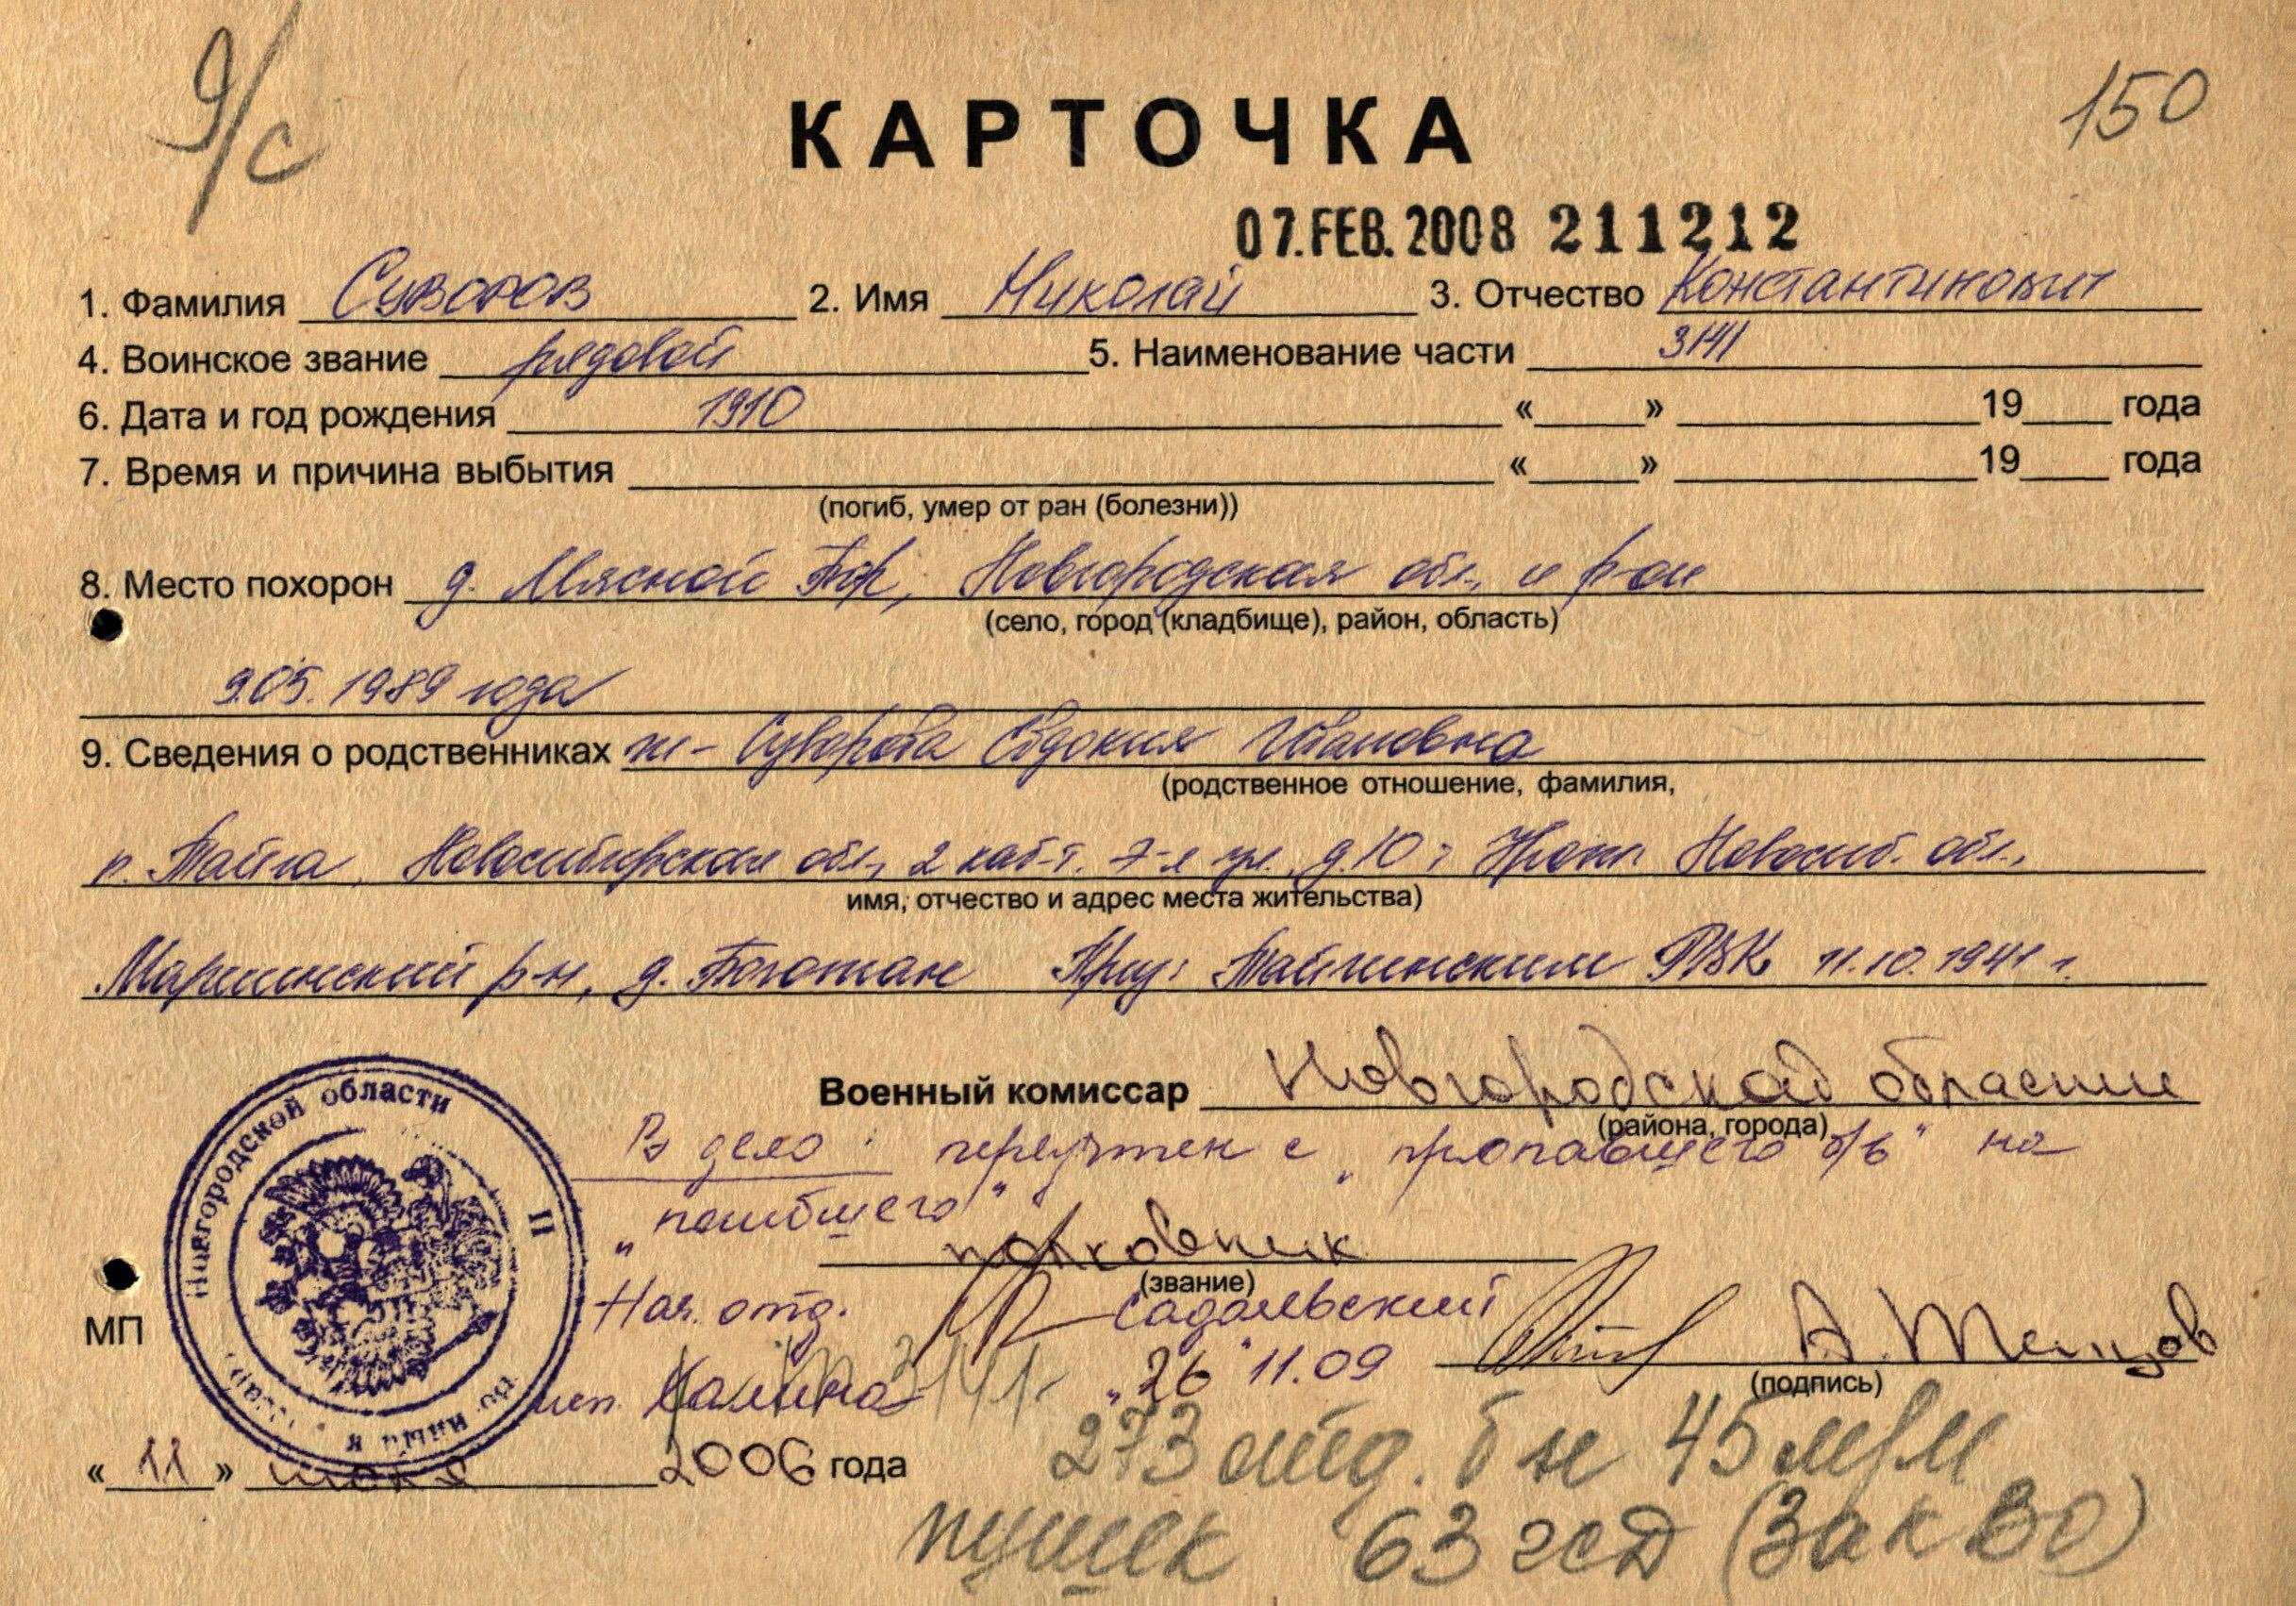 9/с
150
КАРТОЧКА
07.FEB.2008 211212
1. Фамилия Суворов 2. Имя Николай 3. Отчество Константинович
4. Воинское звание рядовой 5. Наименование части 3141
6. Дата и год рождения 1910 « » 19 года
7. Время и причина выбытия « » 19 года
(погиб, умер от ран (болезни))
8. Место похорон д. Мясной Бор, Новгородская обл., и р-он
(село, город (кладбище), район, область)
9.05.1989 года
9. Сведения о родственниках ж- Суворова Евдокия Ивановна
(родственное отношение, фамилия,
Тайга, Новосибирская обл., 2 7-я д.10; Новосиб. обл.,
имя, отчество и адрес места жительства)
Мариинский р-н, д. Приз: Тайгинским РВК 11.10.1941 г.
Военный комиссар Новгородской области
(района, города)
В дело: переучтен с "пропавшего б/в" на
"погибшего"
полковник
(звание)
Нач. отд. Садальский
МП
А. Тенцов
исп. Калина "26" 11.09
3141
(подпись)
Новгородской области
« 11 » июня 2006 года
273 отд. б-н 45 м/м
пушек 63 гсд (ЗакВО)